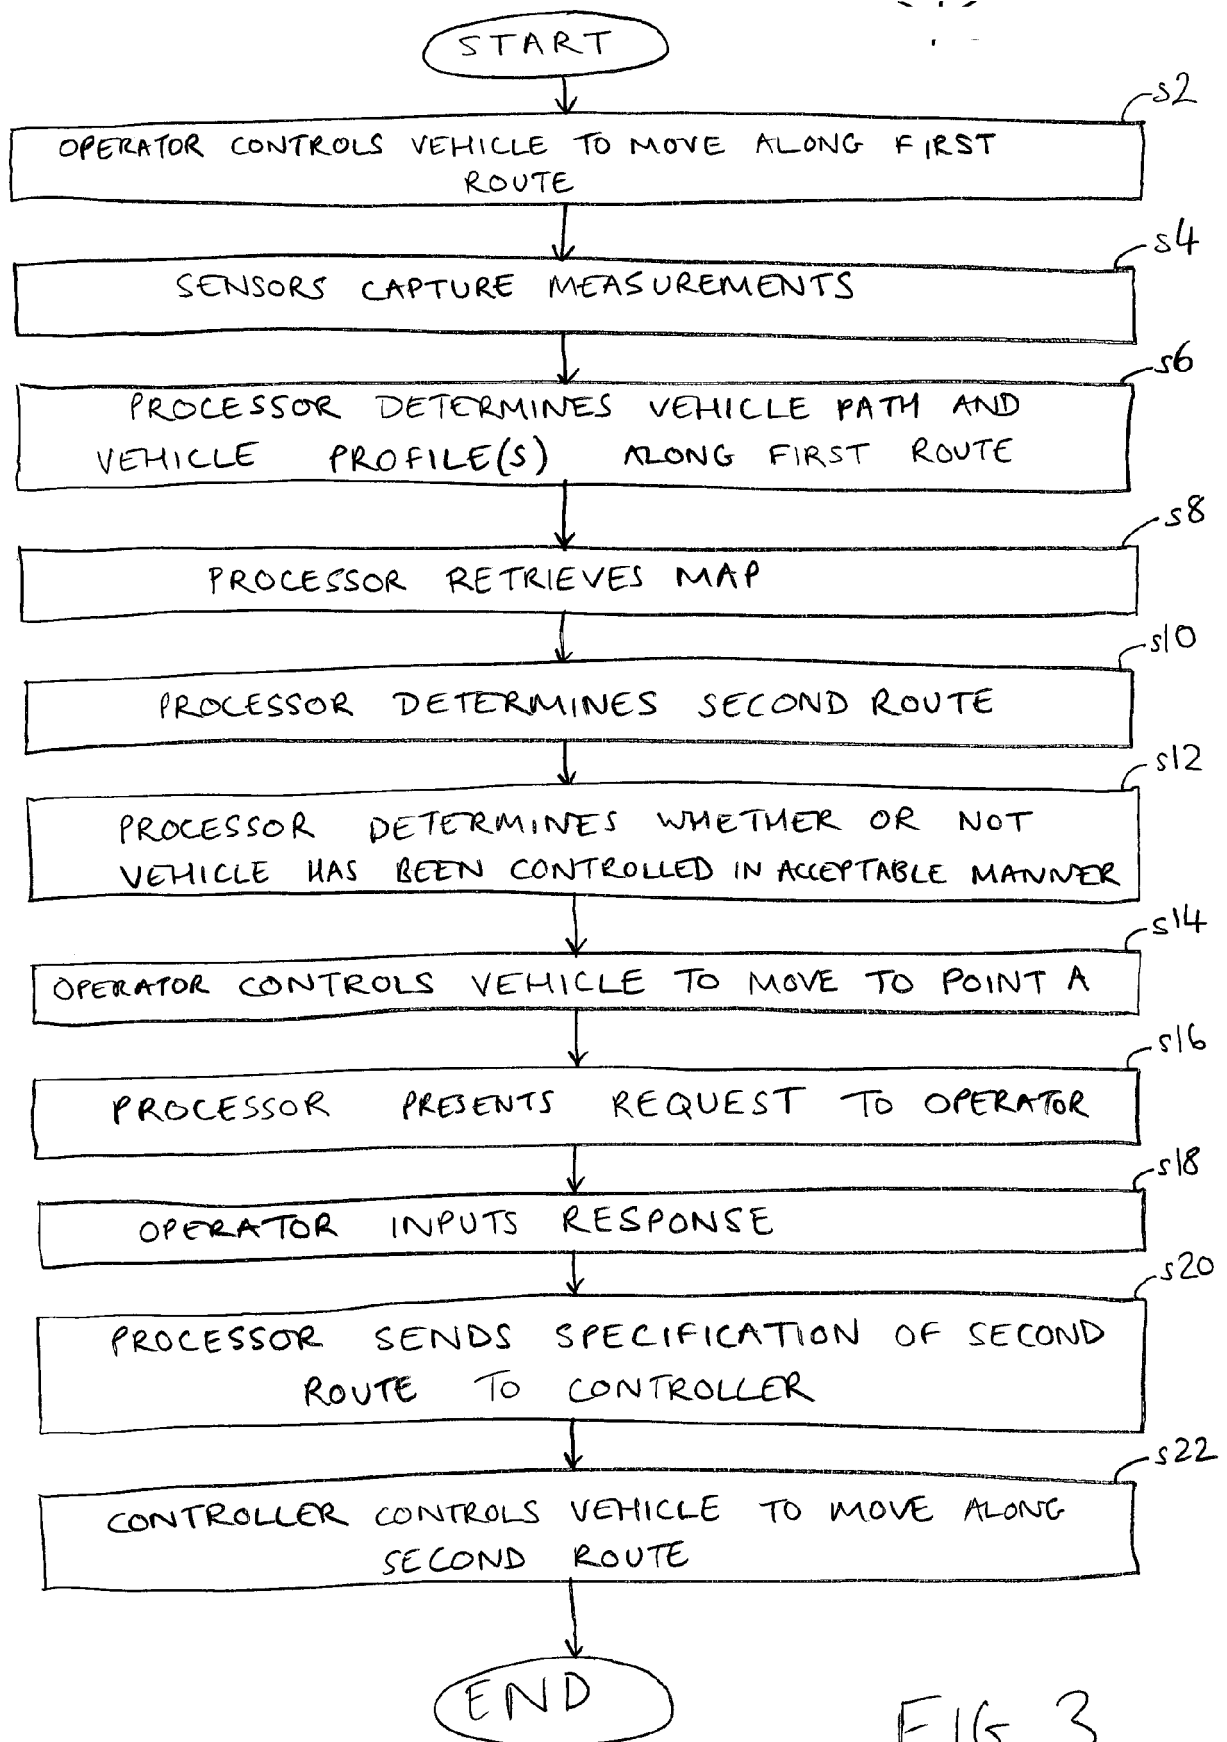 START
s2
OPERATOR CONTROLS VEHICLE TO MOVE ALONG FIRST
ROUTE
s4
SENSORS CAPTURE MEASUREMENTS
s6
PROCESSOR DETERMINES VEHICLE PATH AND
VEHICLE PROFILE(S) ALONG FIRST ROUTE
s8
PROCESSOR RETRIEVES MAP
s10
PROCESSOR DETERMINES SECOND ROUTE
s12
PROCESSOR DETERMINES WHETHER OR NOT
VEHICLE HAS BEEN CONTROLLED IN ACCEPTABLE MANNER
s14
OPERATOR CONTROLS VEHICLE TO MOVE TO POINT A
s16
PROCESSOR PRESENTS REQUEST TO OPERATOR
s18
OPERATOR INPUTS RESPONSE
s20
PROCESSOR SENDS SPECIFICATION OF SECOND
ROUTE TO CONTROLLER
s22
CONTROLLER CONTROLS VEHICLE TO MOVE ALONG
SECOND ROUTE
END
FIG 3